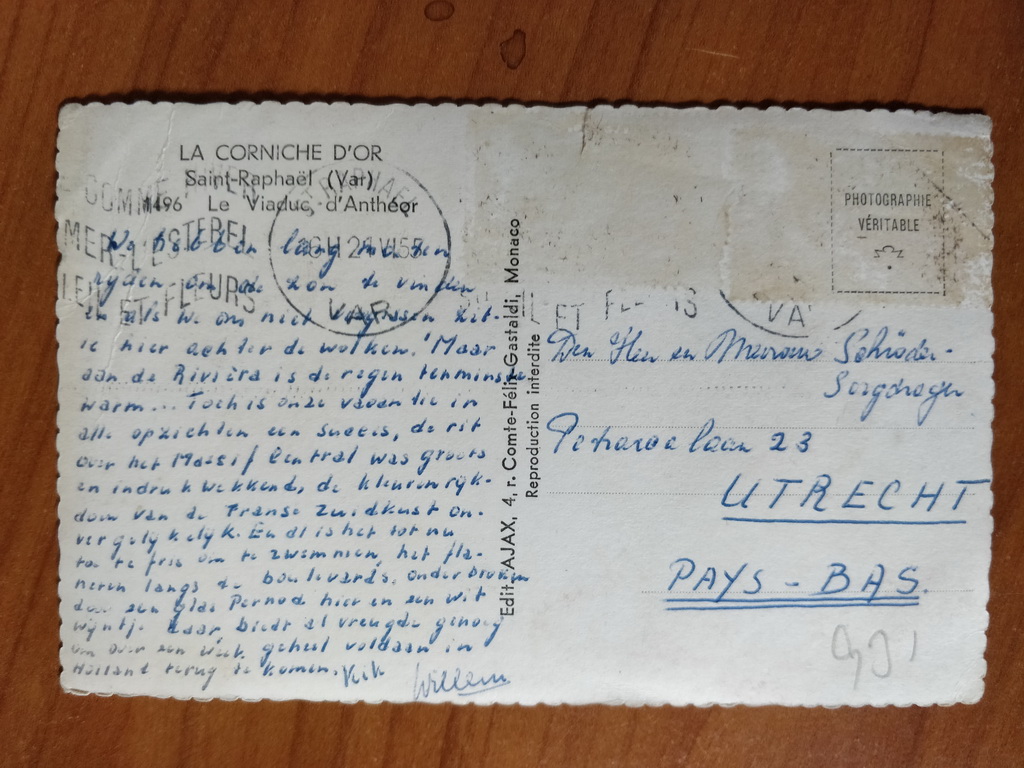 LA CORNICHE D'OR
Saint-Raphaël (Var)
1496 Le Viaduc d'Anthéor
MER-LES
ET FLEURS
VAR
We hebben lang moeten
ryden om de zon te vinden
en als we ons niet vergissen zit-
ie hier achter de wolken! Maar
aan de Rivièra is de regen tenminste
warm... Toch is onze vacantie in
alle opzichten een succes, de rit
over het Massif Central was groots
en indrukwekkend, de kleurenryk-
dom van de Franse Zuidkust on-
vergelykelyk. En al is het tot nu
toe te fris om te zwemmen, het fla-
neren langs de boulevards, onderbroken
door een glas Pernod hier en een wit
wyntje daar, biedt al vreugde genoeg
om over een week geheel voldaan in
Holland terug te komen.
Willem
Edit. AJAX, 4, r. Comte-Félix-Gastaldi, Monaco
Reproduction interdite
PHOTOGRAPHIE
VÉRITABLE
ET
VA
Den Heer en Mevrouw Schröder-
Sorgdrager
Petrarcalaan 23
UTRECHT
PAYS-BAS.